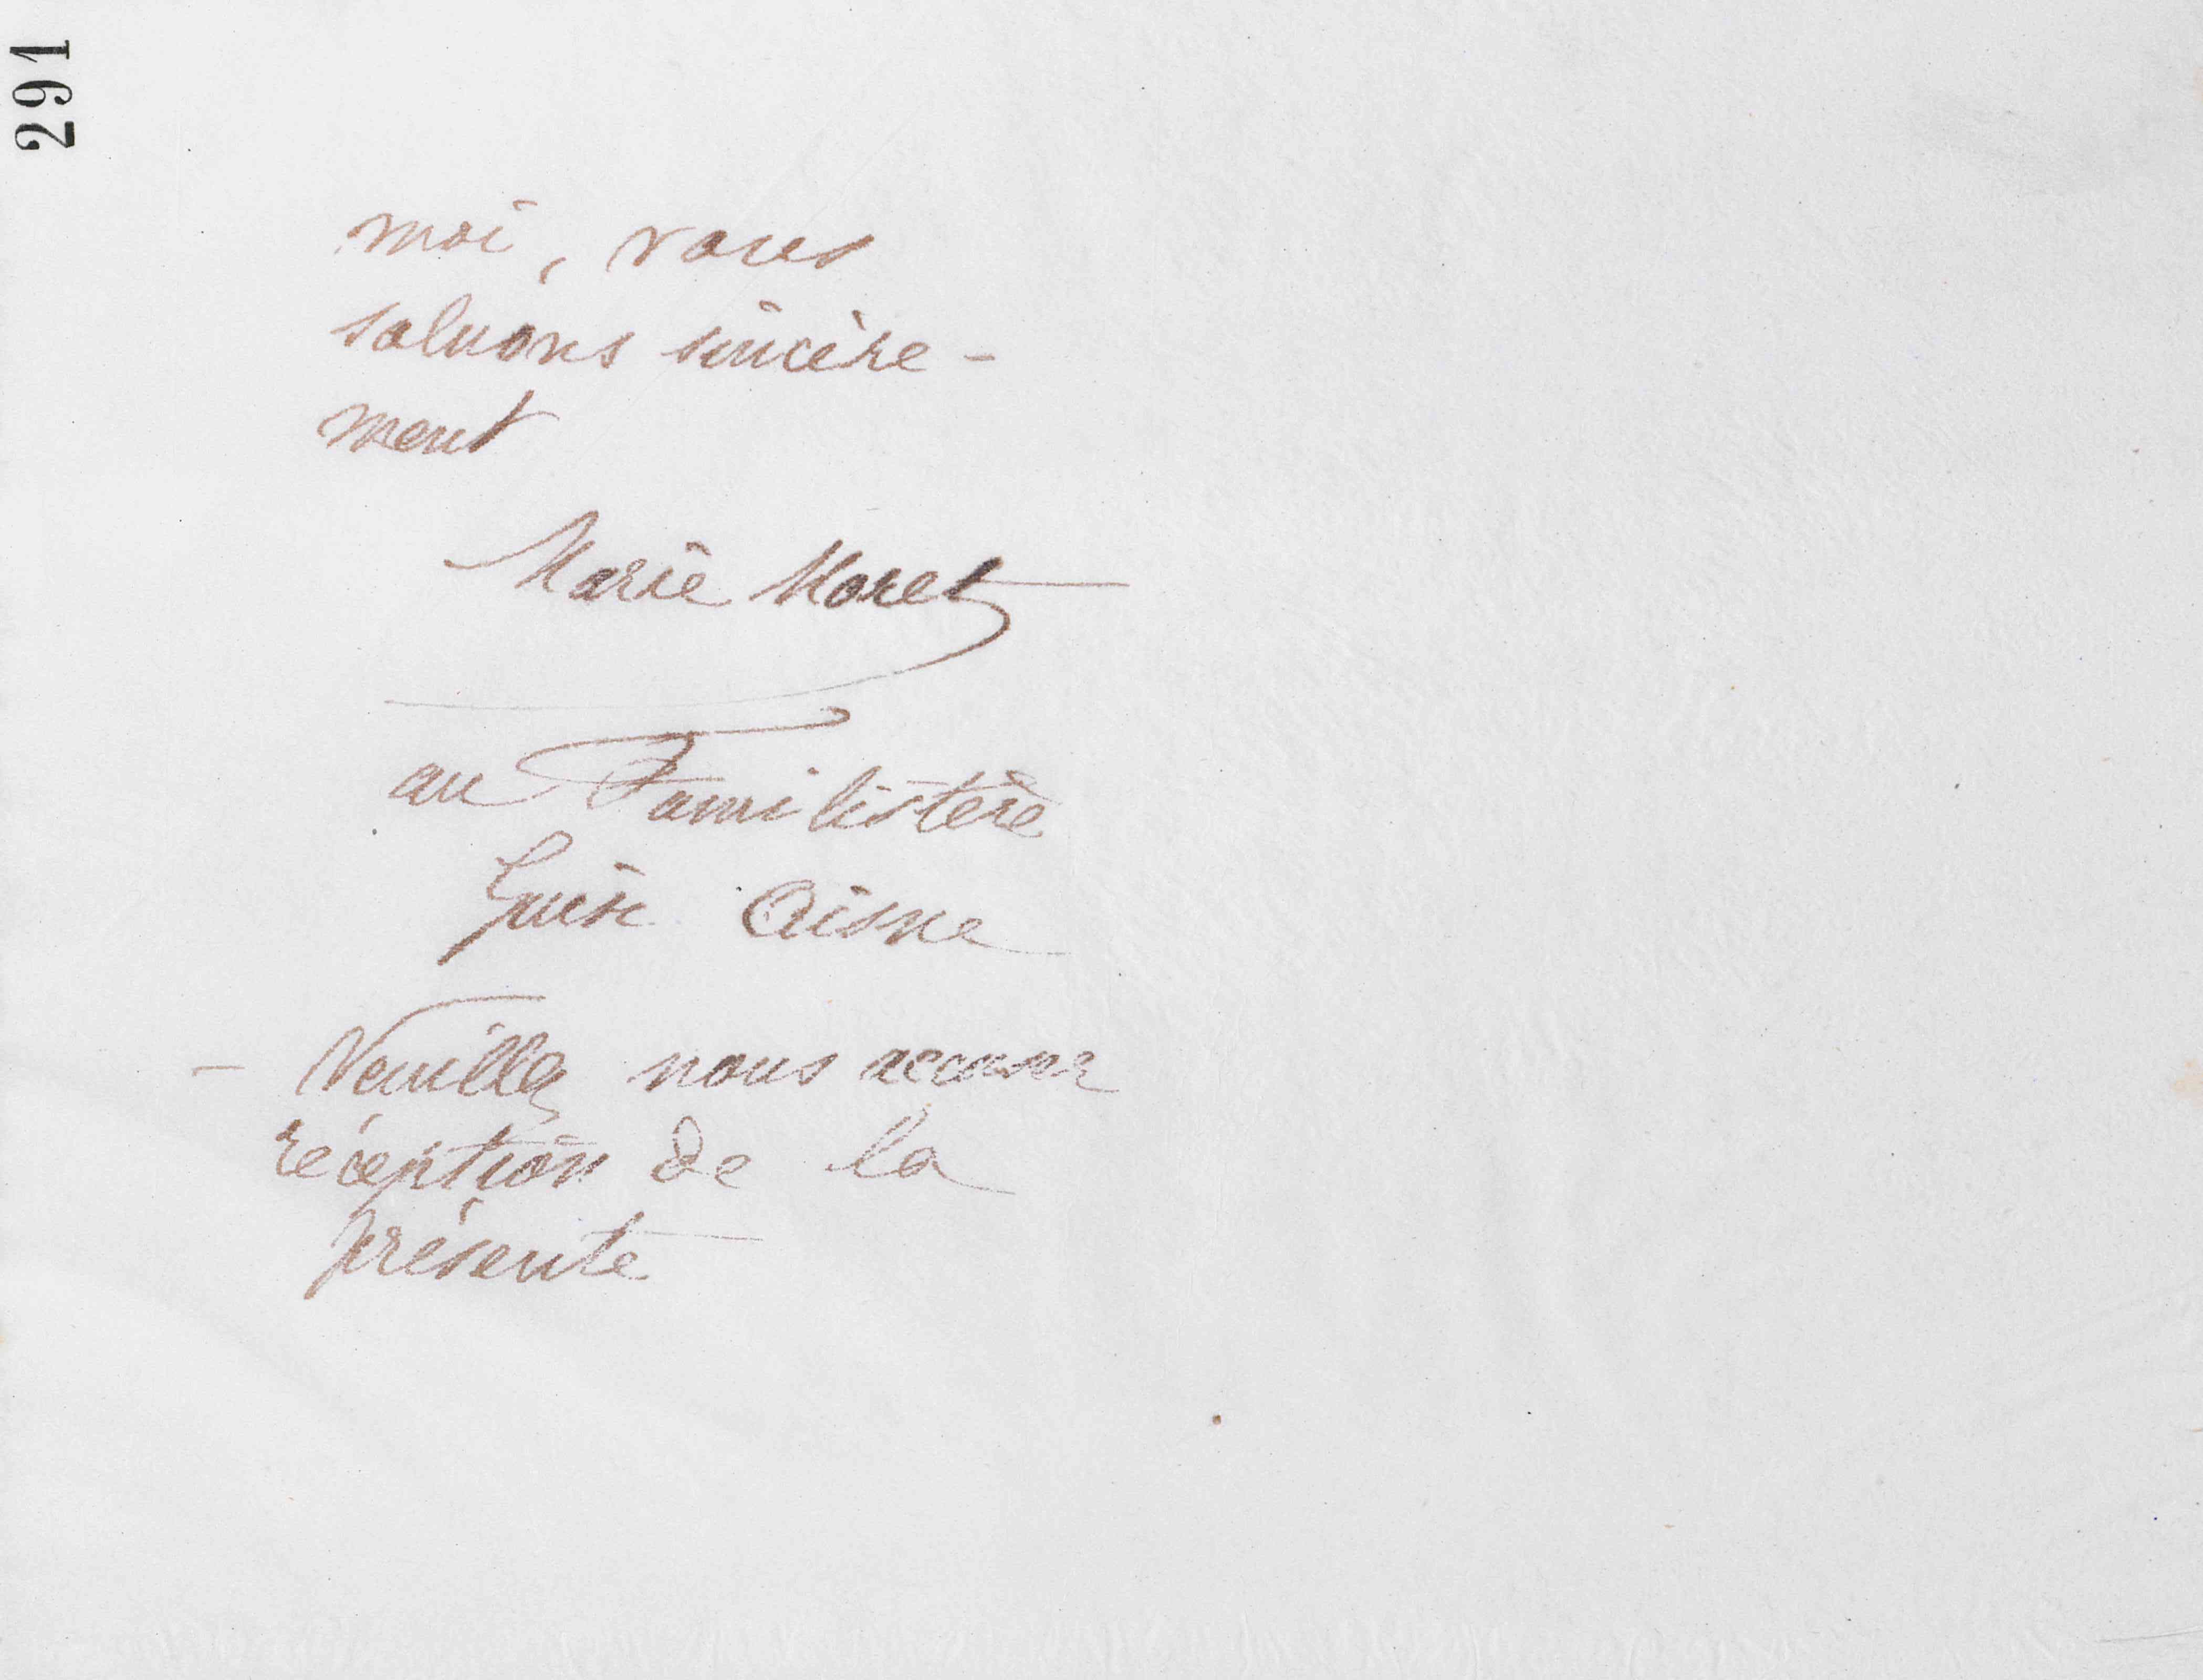 291
moi, vous
saluons sincère-
ment
Marie Moret
au Familistère
Guise Aisne
- Veuillez nous accuser
réception de la
présente